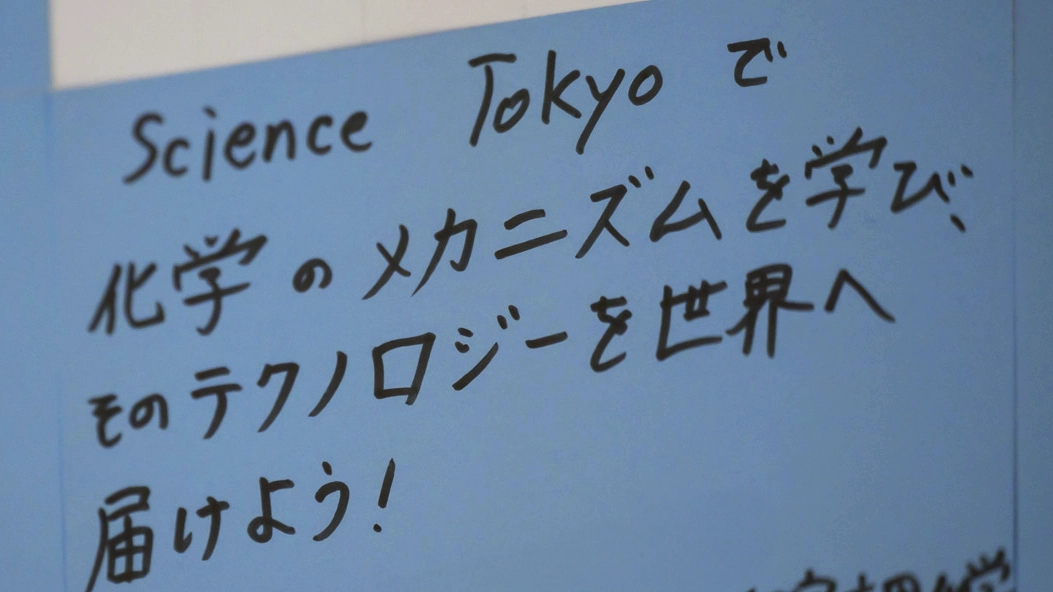 Science Tokyo で
化学のメカニズムを学び、
そのテクノロジーを世界へ
届けよう！